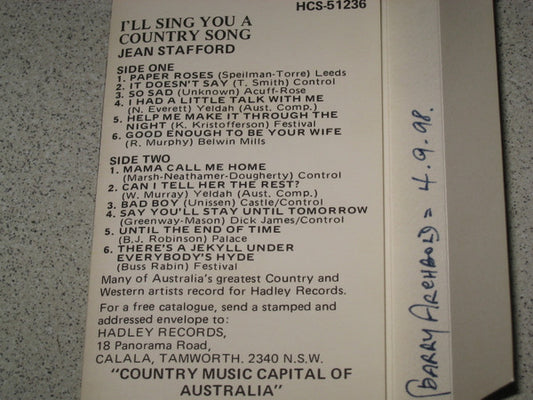 HCS-51236
I'LL SING YOU A
COUNTRY SONG
JEAN STAFFORD
SIDE ONE
1. PAPER ROSES (Speilman-Torre) Leeds
2. IT DOESN'T SAY (T. Smith) Control
3. SO SAD (Unknown) Acuff-Rose
4. I HAD A LITTLE TALK WITH ME
(N. Everett) Yeldah (Aust. Comp.)
5. HELP ME MAKE IT THROUGH THE
NIGHT (K. Kristofferson) Festival
6. GOOD ENOUGH TO BE YOUR WIFE
(R. Murphy) Belwin Mills
SIDE TWO
1. MAMA CALL ME HOME
(Marsh-Neathamer-Dougherty) Control
2. CAN I TELL HER THE REST?
(W. Murray) Yeldah (Aust. Comp.)
3. BAD BOY (Unissen) Castle/Control
4. SAY YOU'LL STAY UNTIL TOMORROW
(Greenway-Mason) Dick James/Control
5. UNTIL THE END OF TIME
(B.J. Robinson) Palace
6. THERE'S A JEKYLL UNDER
EVERYBODY'S HYDE
(Buss Rabin) Festival
Many of Australia's greatest Country and
Western artists record for Hadley Records.
For a free catalogue, send a stamped and
addressed envelope to:
HADLEY RECORDS,
18 Panorama Road,
CALALA, TAMWORTH. 2340 N.S.W.
"COUNTRY MUSIC CAPITAL OF
AUSTRALIA"
BARRY ARCHBOLD = 4.9.98.